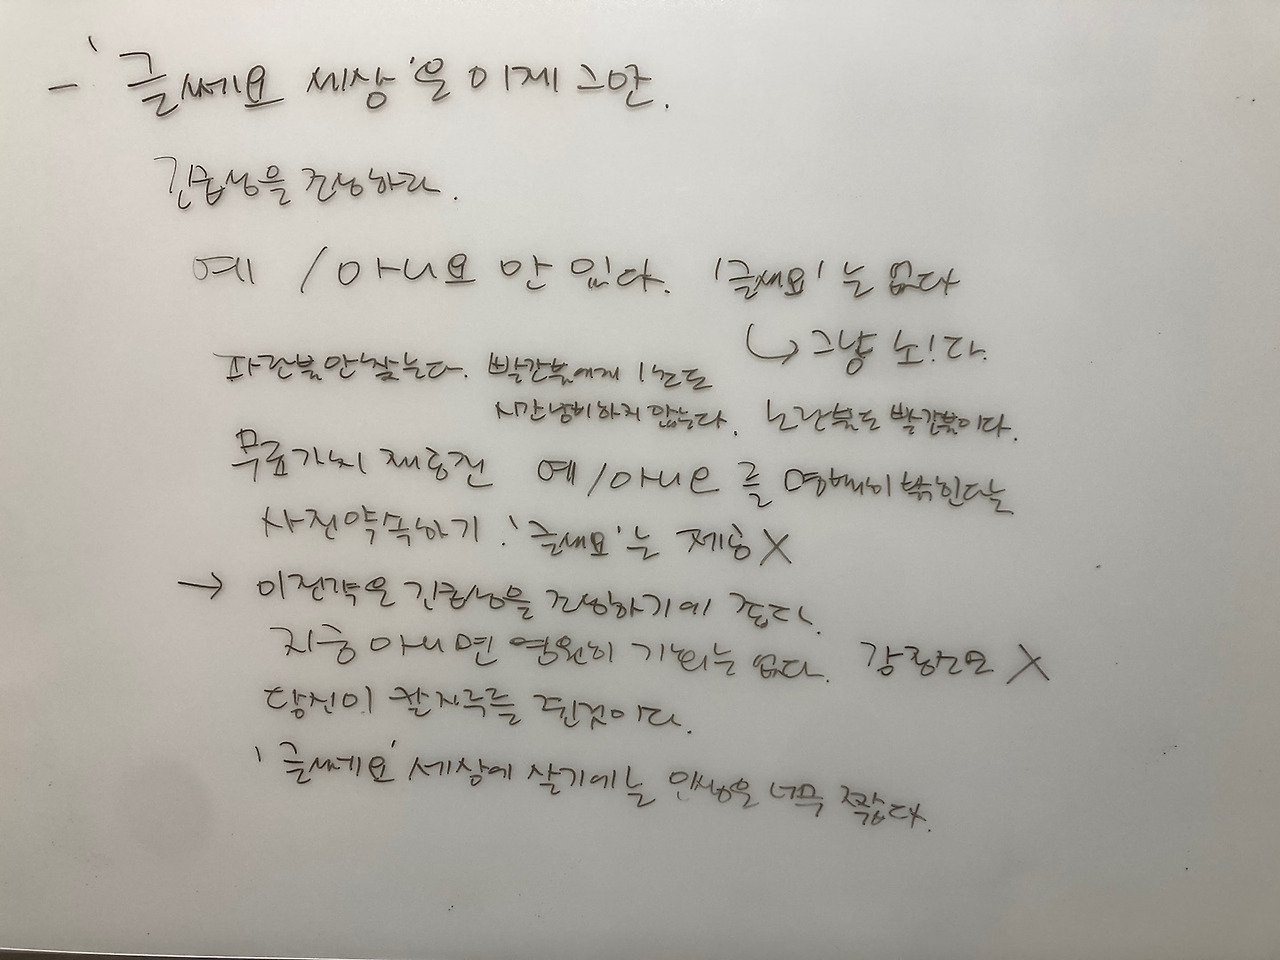 - '글쎄요 세상'은 이제 그만.
긴급성을 조성하라.
예 / 아니요 만 있다. '글쎄요'는 없다
↳ 그냥 노!다.
파란불만 찾는다. 빨간불에게 1초도
시간낭비하지 않는다. 노란불도 빨간불이다.
무료가치 제공전 예/아니요를 명백히 밝힌다는
사전약속하기. '글쎄요'는 제공 X
→ 이전략은 긴급성을 조성하기에 좋다.
지금 아니면 영원히 기회는 없다. 감정소모 X
당신이 칼자루를 쥔것이다.
'글쎄요' 세상에 살기에는 인생은 너무 짧다.